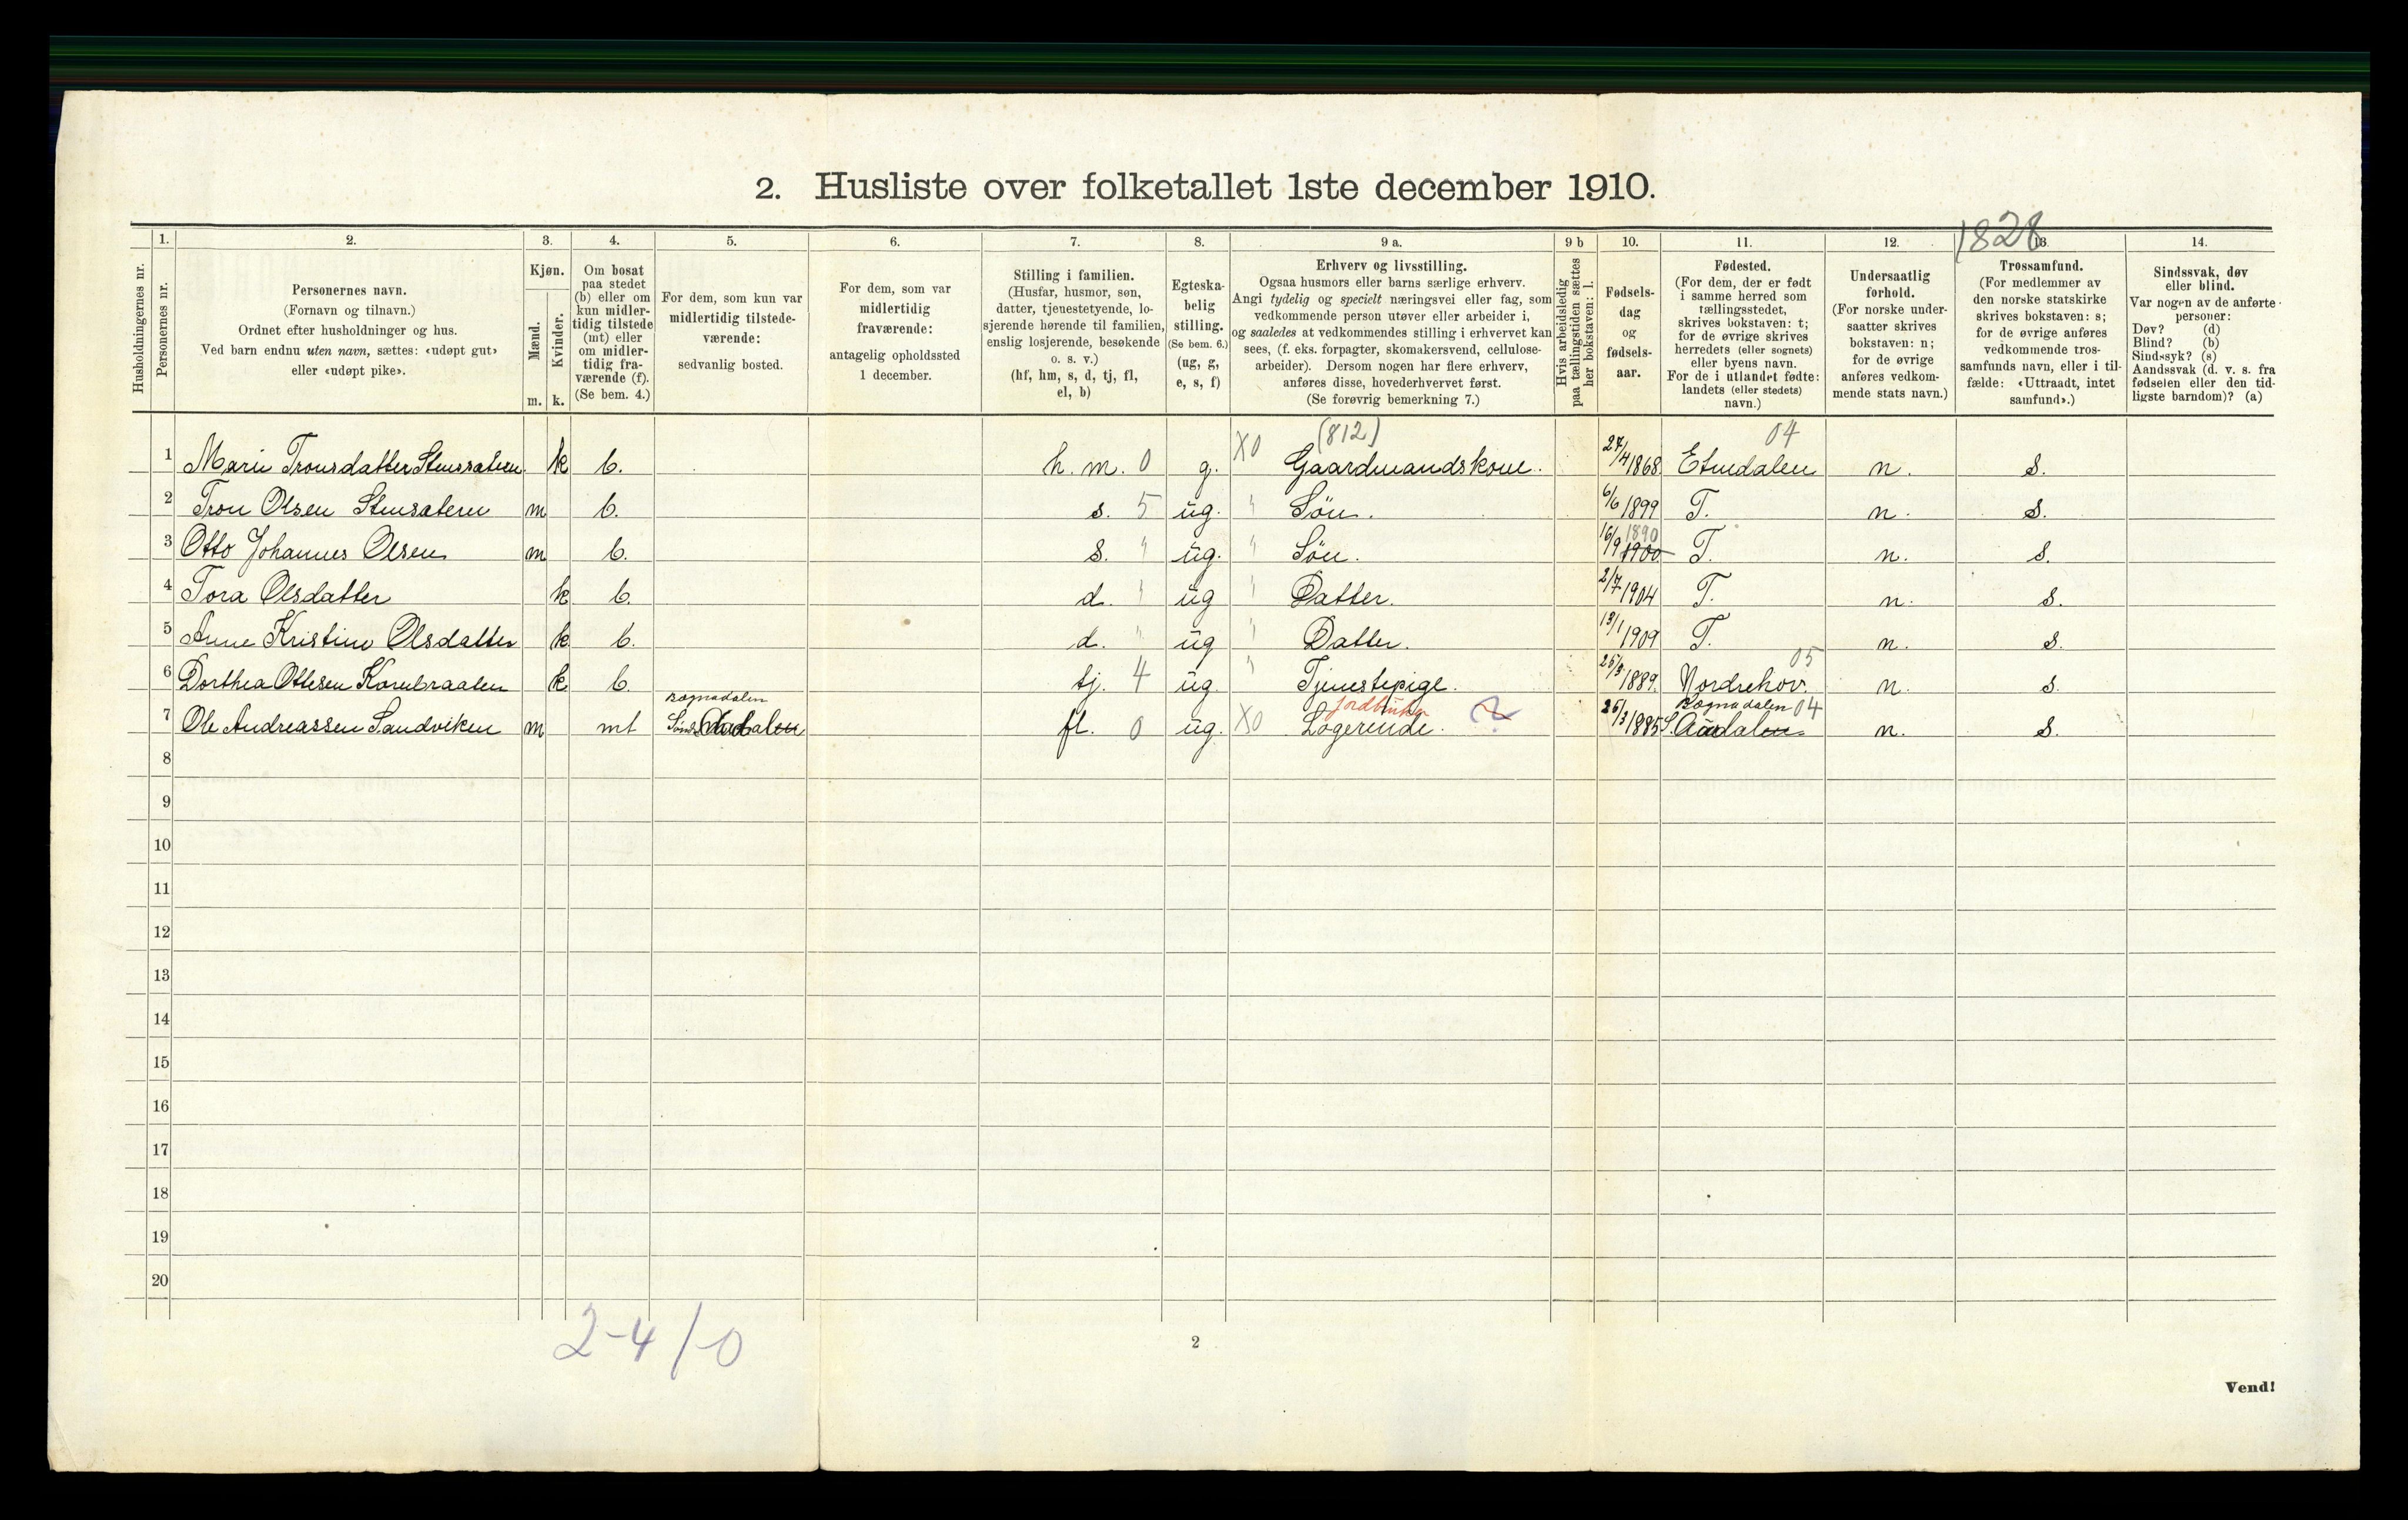 2. Husliste over folketallet 1ste december 1910.
1828
Husholdningernes nr.
1.
Personernes nr.
2.
Personernes navn.
(Fornavn og tilnavn.)
Ordnet efter husholdninger og hus.
Ved barn endnu uten navn, sættes: «udøpt gut»
eller «udøpt pike».
3.
Kjøn.
Mænd.
Kvinder.
m. k.
4.
Om bosat
paa stedet
(b) eller om
kun midler-
tidig tilstede
(mt) eller
om midler-
tidig fra-
værende (f).
(Se bem. 4.)
5.
For dem, som kun var
midlertidig tilstede-
værende:
sedvanlig bosted.
6.
For dem, som var
midlertidig
fraværende:
antagelig opholdssted
1 december.
7.
Stilling i familien.
(Husfar, husmor, søn,
datter, tjenestetyende, lo-
sjerende hørende til familien,
enslig losjerende, besøkende
o. s. v.)
(hf, hm, s, d, tj, fl,
el, b)
8.
Egteska-
belig
stilling.
(Se bem. 6.)
(ug, g,
e, s, f)
9 a.
Erhverv og livsstilling.
Ogsaa husmors eller barns særlige erhverv.
Angi tydelig og specielt næringsvei eller fag, som
vedkommende person utøver eller arbeider i,
og saaledes at vedkommendes stilling i erhvervet kan
sees, (f. eks. forpagter, skomakersvend, cellulose-
arbeider). Dersom nogen har flere erhverv,
anføres disse, hovederhvervet først.
(Se forøvrig bemerkning 7.)
9 b
Hvis arbeidsledig
paa tællingstiden sættes
her bokstaven: l.
10.
Fødsels-
dag
og
fødsels-
aar.
11.
Fødested.
(For dem, der er født
i samme herred som
tællingsstedet,
skrives bokstaven: t;
for de øvrige skrives
herredets (eller sognets)
eller byens navn.
For de i utlandet fødte:
landets (eller stedets)
navn.)
12.
Undersaatlig
forhold.
(For norske under-
saatter skrives
bokstaven: n;
for de øvrige
anføres vedkom-
mende stats navn.)
13.
Trossamfund.
(For medlemmer av
den norske statskirke
skrives bokstaven: s;
for de øvrige anføres
vedkommende tros-
samfunds navn, eller i til-
fælde: «Uttraadt, intet
samfund».)
14.
Sindssvak, døv
eller blind.
Var nogen av de anførte
personer:
Døv? (d)
Blind? (b)
Sindssyk? (s)
Aandssvak (d. v. s. fra
fødselen eller den tid-
ligste barndom)? (a)
(812) 04
1 Marie Tronsdatter Stensæteren k b. h. m. 0 g. X0 Gaardmandskone. 27/4 1868 Etnedalen n. s.
2 Tron Olsen Stensæteren m b. s. 5 ug. " Søn. 6/6 1899 T. n. s.
1890
3 Otto Johannes Olsen m b. s. " ug. " Søn. 16/9 1900 T. n. s.
4 Tora Olsdatter k b. d. " ug " Datter. 2/7 1904 T. n. s.
5 Anne Kristine Olsdatter k b. d. " ug " Datter. 13/1 1909 T. n. s.
05
6 Dorthea Ottesen k b. tj. 4 ug. " Tjenestepige. 1889. Nordrehov. n. s.
Bagnadalen Jordbruker Bagnadalen 04
7 Ole Andreassen Sandviken m mt fl. 0 ug. X0 Logerende. 1885 S. Aadalen n. s.
8
9
10
11
12
13
14
15
16
17
18
19
20
2-4/-0
2
Vend!